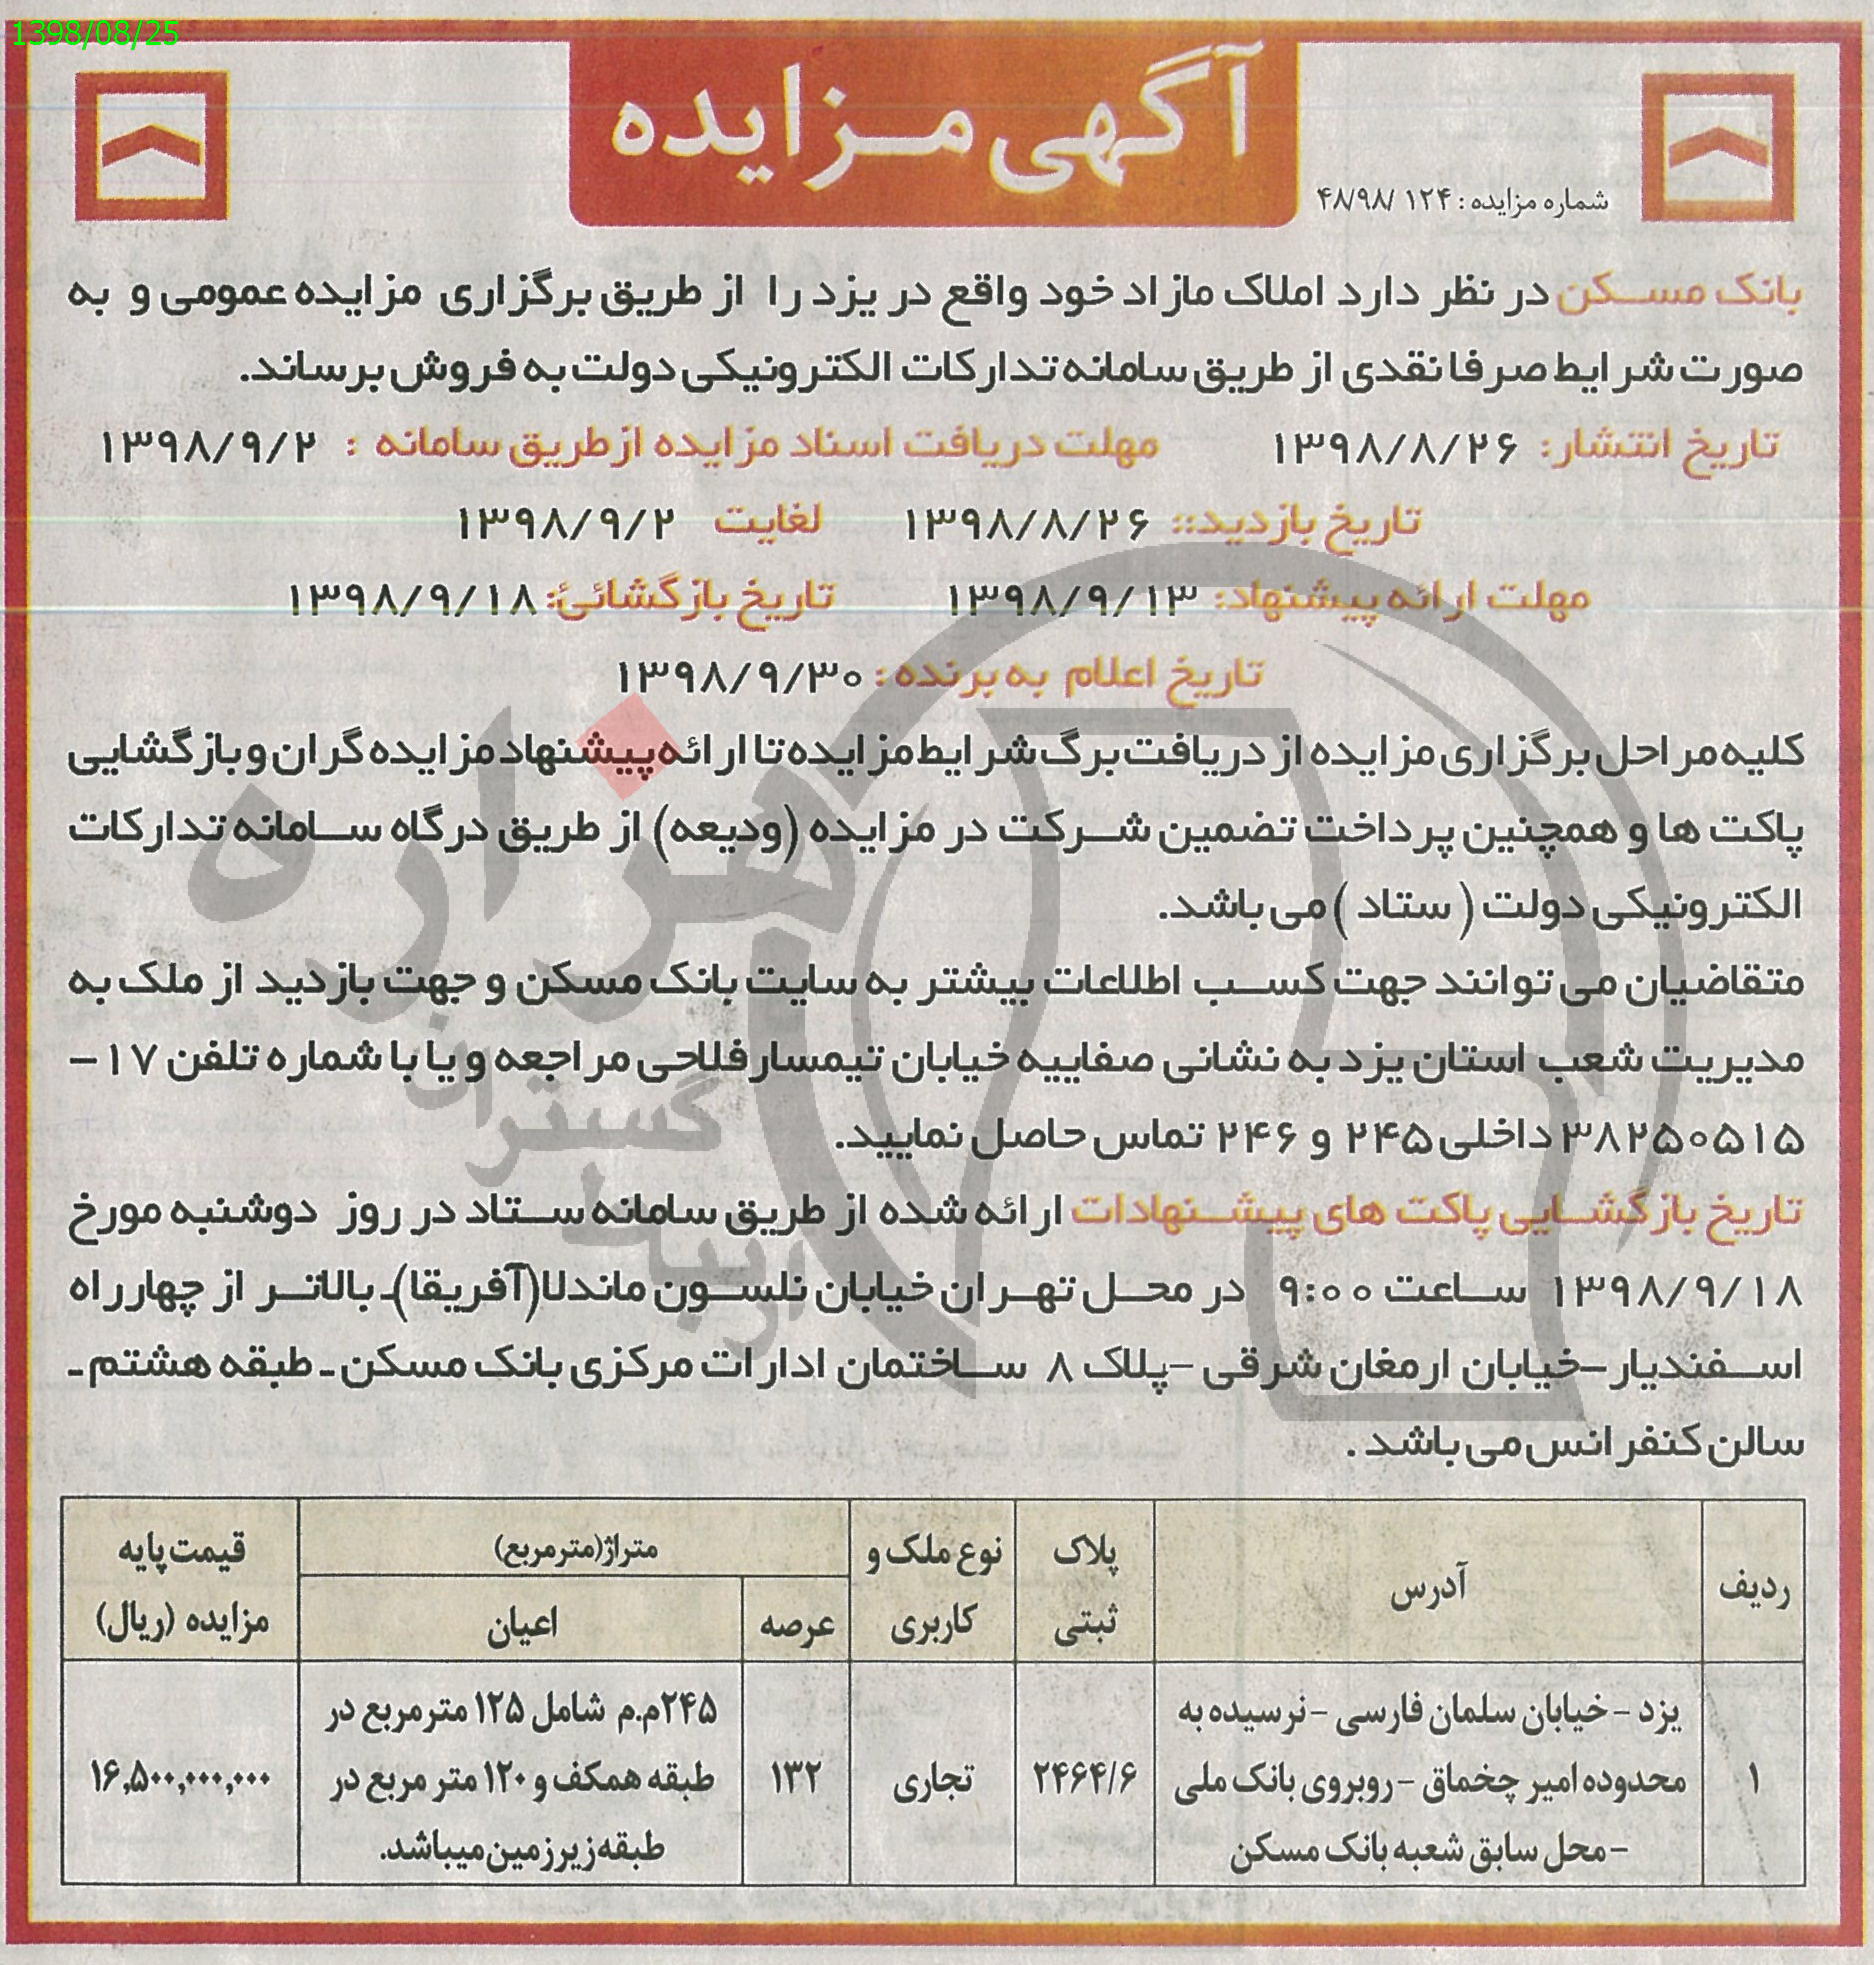 1398/08/25
آگهی مزایده
شماره مزایده : ۱۲۴ /۴۸/۹۸
بانک مسکن در نظر دارد املاک مازاد خود واقع در یزد را از طریق برگزاری مزایده عمومی و به
صورت شرایط صرفا نقدی از طریق سامانه تدارکات الکترونیکی دولت به فروش برساند.
تاریخ انتشار: ۱۳۹۸/۸/۲۶ مهلت دریافت اسناد مزایده از طریق سامانه : ۱۳۹۸/۹/۲
تاریخ بازدید:: ۱۳۹۸/۸/۲۶ لغایت ۱۳۹۸/۹/۲
مهلت ارائه پیشنهاد: ۱۳۹۸/۹/۱۳ تاریخ بازگشائئ: ۱۳۹۸/۹/۱۸
تاریخ اعلام به برنده : ۱۳۹۸/۹/۳۰
کلیه مراحل برگزاری مزایده از دریافت برگ شرایط مزایده تا ارائه پیشنهاد مزایده گران و بازگشایی
پاکت ها و همچنین پرداخت تضمین شرکت در مزایده (ودیعه) از طریق درگاه سامانه تدارکات
الکترونیکی دولت ( ستاد ) می باشد.
متقاضیان می توانند جهت کسب اطلاعات بیشتر به سایت بانک مسکن و جهت بازدید از ملک به
مدیریت شعب استان یزد به نشانی صفاییه خیابان تیمسار فلاحی مراجعه و یا با شماره تلفن ۱۷–
۳۸۲۵۰۵۱۵ داخلی ۲۴۵ و ۲۴۶ تماس حاصل نمایید.
تاریخ بازگشایی پاکت های پیشنهادات ارائه شده از طریق سامانه ستاد در روز دوشنبه مورخ
۱۳۹۸/۹/۱۸ ساعت ۹:۰۰ در محل تهران خیابان نلسون ماندلا(آفریقا)ـ بالاتر از چهارراه
اسفندیار–خیابان ارمغان شرقی –پلاک ۸ ساختمان ادارات مرکزی بانک مسکن ـ طبقه هشتم ـ
سالن کنفرانس می باشد .
ردیف آدرس پلاک ثبتی نوع ملک و کاربری متراژ(مترمربع) عرصه اعیان قیمت پایه مزایده (ریال)
۱ یزد – خیابان سلمان فارسی – نرسیده به
محدوده امیر چخماق – روبروی بانک ملی
– محل سابق شعبه بانک مسکن
۲۴۶۴/۶ تجاری ۱۳۲
۲۴۵م.م شامل ۱۲۵ مترمربع در
طبقه همکف و ۱۲۰ متر مربع در
طبقه زیرزمین میباشد.
۱۶,۵۰۰,۰۰۰,۰۰۰
هزاره
گستران